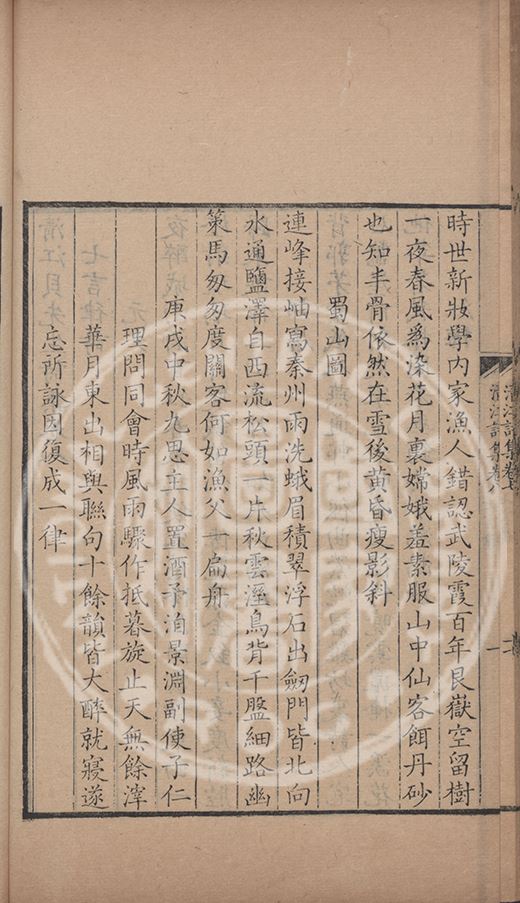 時世新妝學內家漁人錯認武陵霞百年艮嶽空留樹
一夜春風爲染花月裏嫦娥羞素服山中仙客餌丹砂
也知丰骨依然在雪後黃昏瘦影斜
蜀山圖
連峰接岫寫秦州雨洗蛾眉積翠浮石出劒門皆北向
水通鹽澤自西流松頭一片秋雲溼鳥背千盤細路幽
策馬匆匆度關客何如漁父一扁舟
庚戌中秋九思主人置酒予洎景淵副使子仁
理問同會時風雨驟作抵暮旋止天無餘滓
華月東出相與聯句十餘韻皆大醉就寢遂
忘所詠因復成一律